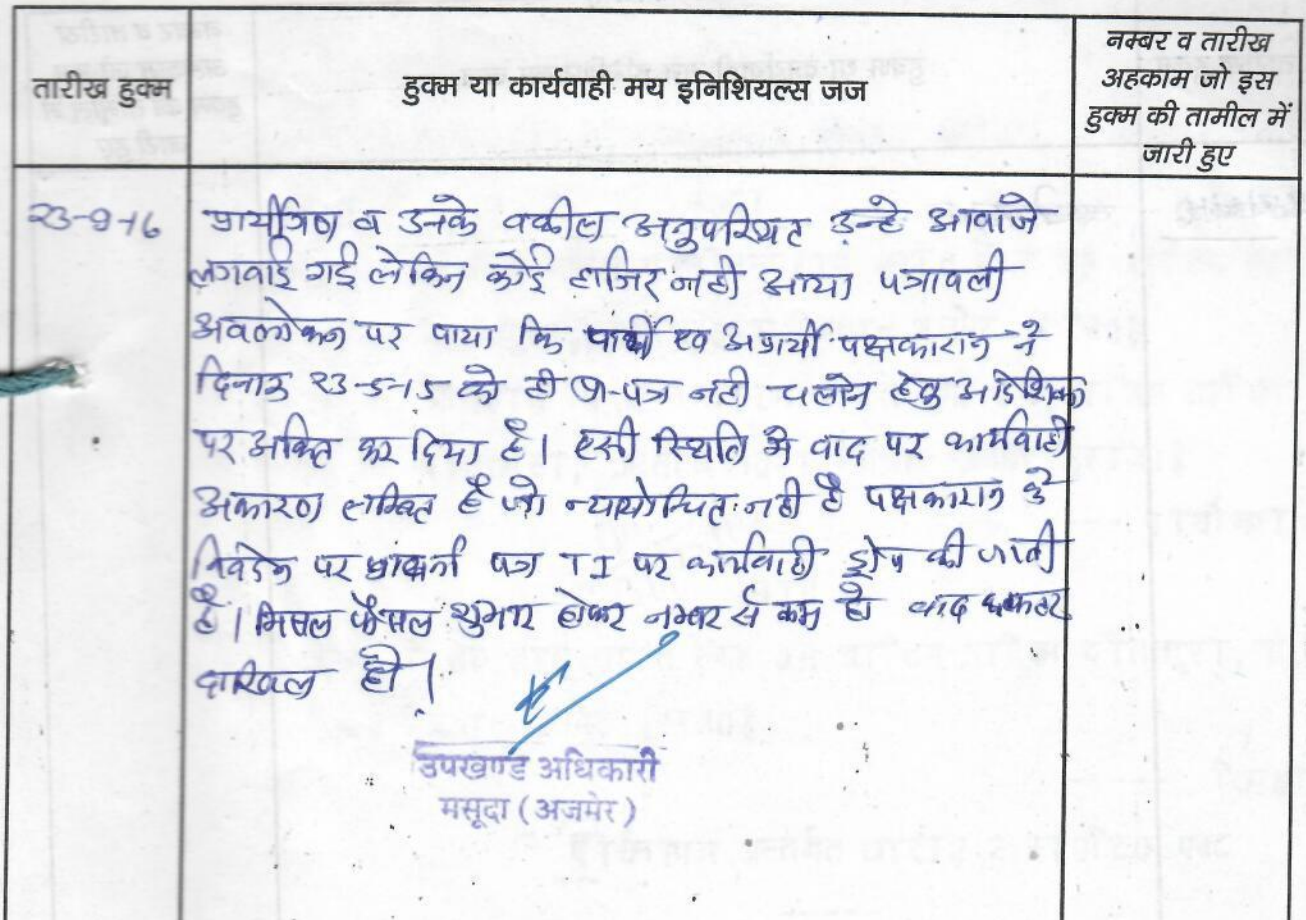 तारीख हुक्म
हुक्म या कार्यवाही मय इनिशियल्स जज
नम्बर व तारीख
अहकाम जो इस
हुक्म की तामील में
जारी हुए
23-9-16
प्रार्थीगण व उनके वकील अनुपस्थित उन्हे आवाजे
लगवाई गई लेकिन कोई हाजिर नही आया पत्रावली
अवलोकन पर पाया कि प्रार्थी एव अप्रार्थी पक्षकारान ने
दिनाक 23-5-15 को ही प्रा-पत्र नही चलाने हेतु आदेशिका
पर अंकित कर दिया है। एसी स्थिति मे वाद पर कार्यवाही
अकारण लम्बित है जो न्यायोचित नही है पक्षकारान के
निवेदन पर प्रार्थना पत्र TI पर कार्यवाही ड्रोप की जाती
है। मिसल फैसल शुमार होकर नम्बर से कम हो वाद
दाखिल हो।
उपखण्ड अधिकारी
मसूदा (अजमेर)